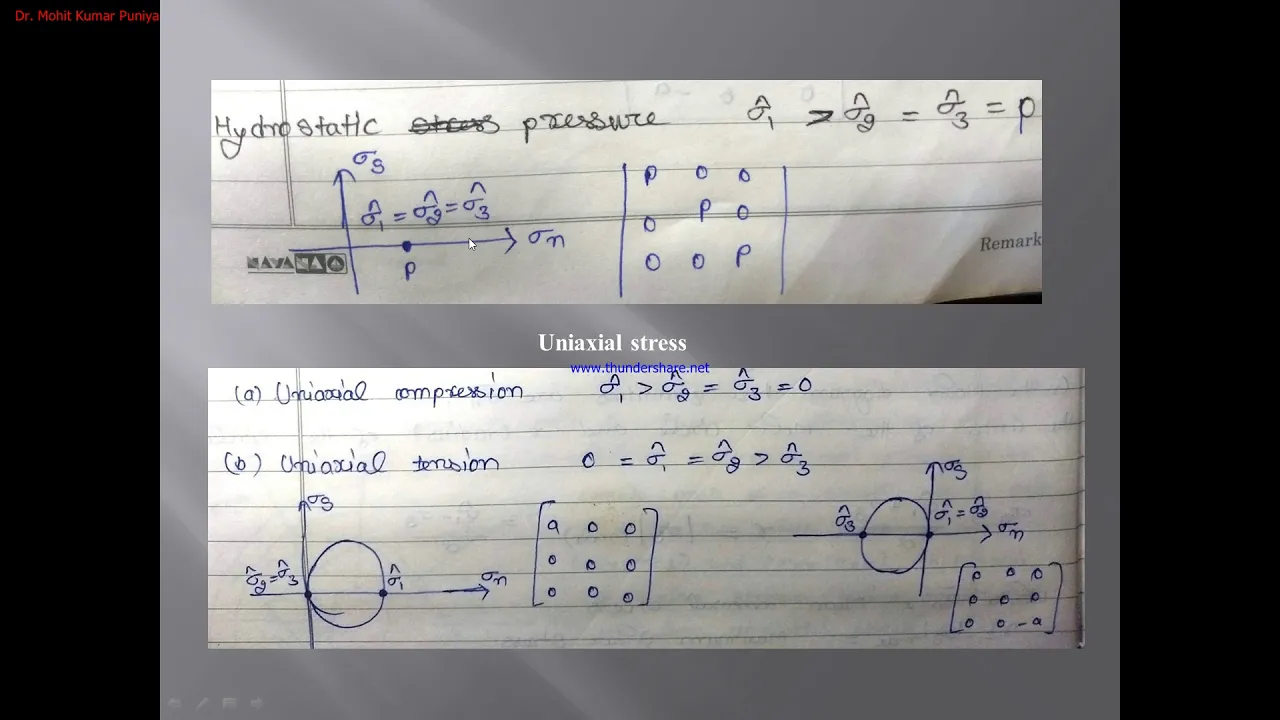 Dr. Mohit Kumar Puniya
Hydrostatic stress pressure σ̂₁ > σ̂₂ = σ̂₃ = p
σs
σ̂₁ = σ̂₂ = σ̂₃
σn
p
p 0 0
0 p 0
0 0 p
NAVANA
Remark
Uniaxial stress
www.thundershare.net
(a) Uniaxial compression σ̂₁ > σ̂₂ = σ̂₃ = 0
(b) Uniaxial tension 0 = σ̂₁ = σ̂₂ > σ̂₃
σs
σ̂₂ = σ̂₃
σ̂₁
σn
a 0 0
0 0 0
0 0 0
σs
σ̂₃
σ̂₁ = σ̂₂
σn
0 0 0
0 0 0
0 0 -a